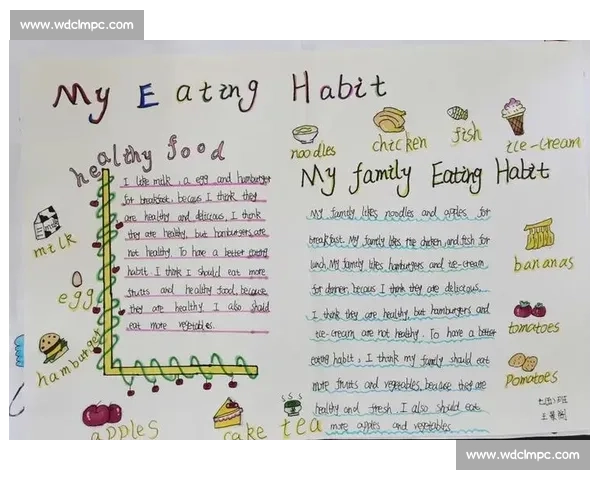 www.wdclmpc.com
My Eating Habit
healthy food
I like milk, a egg and hamburger
for breakfast, becaus I think they
are healthy and delicious, I think
they are healthy, but hamburgers are
not healthy. To have a better eating
habit. I think I should eat more
fruits and healthy food, because
they are healthy. I also should
eat more vegetables.
milk
egg
hamburger
apples
cake
tea
noodles
chicken
fish
ice-cream
My family Eating Habit
My family likes noodles and apples for
breakfast. My family likes the chicken and fish for
lunch. My family likes hamburgers and ice-cream
for dinner, becaus I think they are delicious.
I think they are healthy, but hamburgers and
ice-cream are not healthy. To have a better
eating habit, I think my family should eat
more fruits and vegetables, because they are
healthy and fresh. I also should eat
more apples and vegetables.
bananas
tomatoes
Pomatoes
七(四)班
www.wdclmpc.com